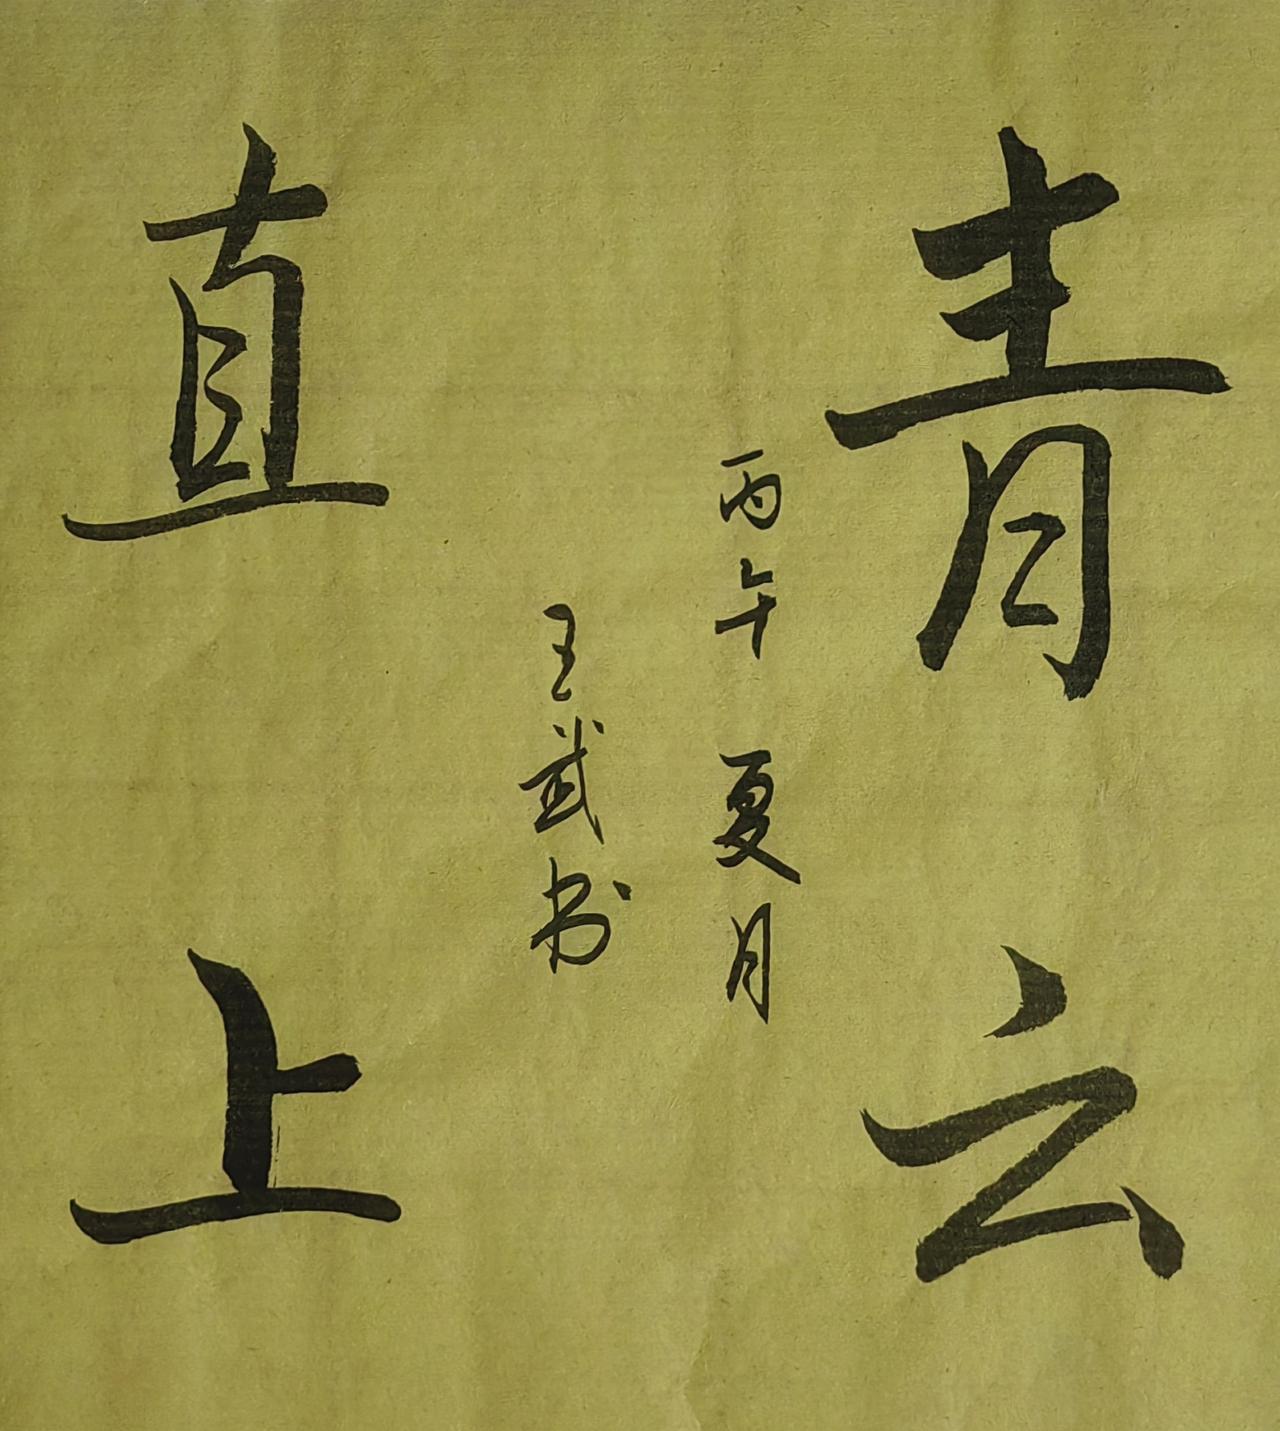 青云
丙午夏月
王武书
直上